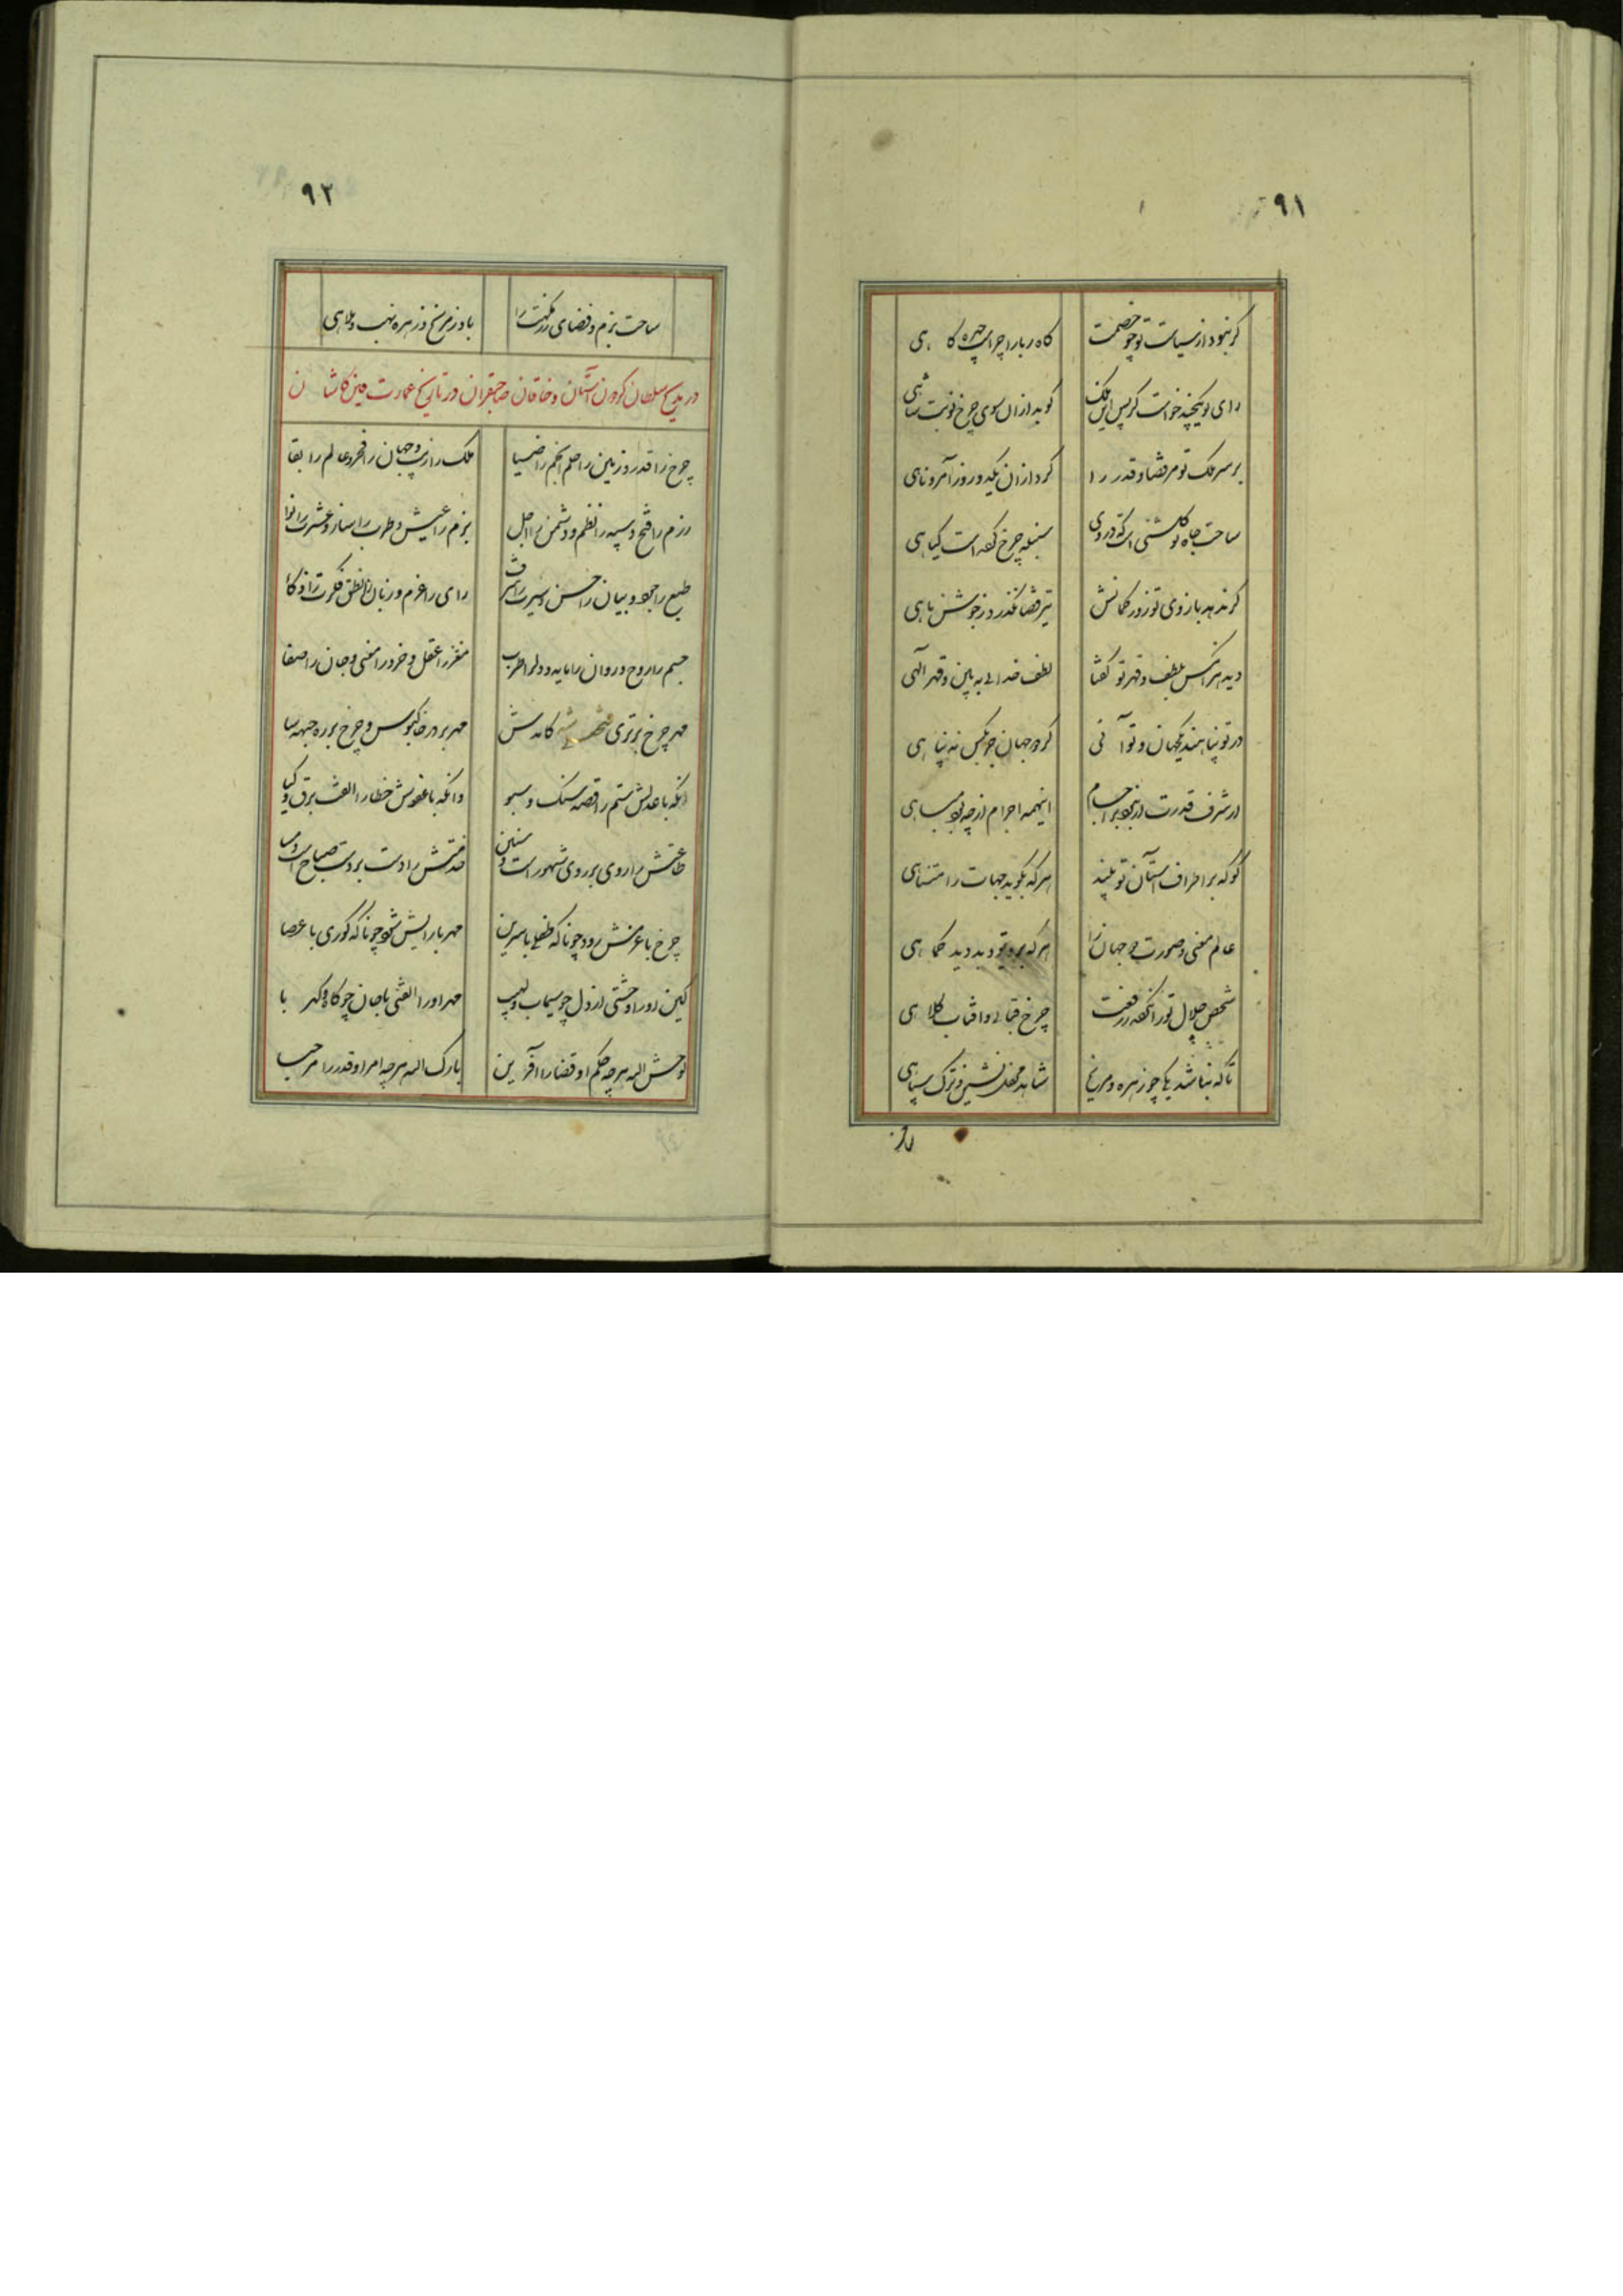 ۹۱
گر نبود از سیاست تو چو خصمت کاه ربا را چراست چهره کاهی
رای تو یکچند خواست کز پس این ملک کوبد از آن سوی چرخ نوبت شاهی
بر سر ملک تو مر قضا و قدر را کرد از آن یکدو روز آمر و ناهی
ساحت جاه تو گلشنی است که در وی سنبله چرخ گفته است گیاهی
گر ندهد بازوی تو زور کمانش تیر قضا نگذرد ز جوشن ماهی
دید هر آنکس بلطف و قهر تو گفتا لطف خدائی به بین و قهر الهی
در تو پناهند یکجهان و تو آنی کز دو جهان جز بکس نه پناهی
از شرف قدرت ار نبود بر اجسام اینهمه اجرام از چه بود مباهی
گو که بر اطراف آستان تو بیند هر که بگوید جهات را متناهی
عالم معنی و صورت دو جهان را هر که بروی تو دید دید کماهی
شخص جلال تو را نگفته ز رفعت چرخ قبائی و آفتاب کلاهی
تا که نباشد یکی چو زهره و مریخ شاهد محفل نشین و ترک سپاهی
باد
۹۲
ساحت بزم و فضای رزمگهت را باد ز مریخ و ز زهره نهب و ملاهی
در مدیح سلطان گردون آستان و خاقان صاحبقران در تاریخ عمارت فین کاشان
چرخ را قدر و زمین را حلم و انجم را ضیا ملک را زیب و جهان را فخر و عالم را بقا
رزم را فتح و سپه را نظم و دشمن را اجل بزم را عیش و طرب را ساز و عشرت را نوا
طبع را جود و بیان را حسن و سیرت را شرف رای را عزم و زبان را نطق و فکرت را ذکا
جسم را روح و روان را مایه و دل را طرب مغز را عقل و خرد را معنی و جان را صفا
مهر چرخ برتری فتحعلی شه کامدش مهر بر در خاکبوس و چرخ بر ره جبهه سا
آنکه با عدلش ستم را قصه سنگ و سبو وانکه با عفوش خطا را الفت برق و گیا
طاعتش را روی بر روی شهور است و سنین خدمتش را دست بر دست صباح است و مسا
چرخ با عزمش رود چونانکه طفلی با سرین مهر با رایش شود چونانکه کوری با عصا
کین او را وحشتی از دل چو سیماب و لهیب مهر او را الفتی با جان چو کاه و کهربا
لوحش الله هر چه حکم او قضا را آفرین بارک الله هر چه امر او قدر را مرحبا